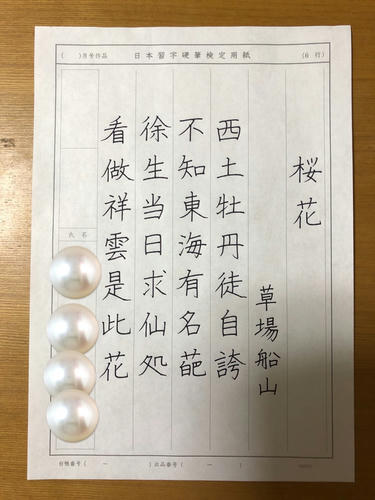 ( )月号作品 日本習字硬筆検定用紙 (6 行)
桜花
草場船山
西土牡丹徒自誇
不知東海有名葩
徐生当日求仙処
看做祥雲是此花
氏名